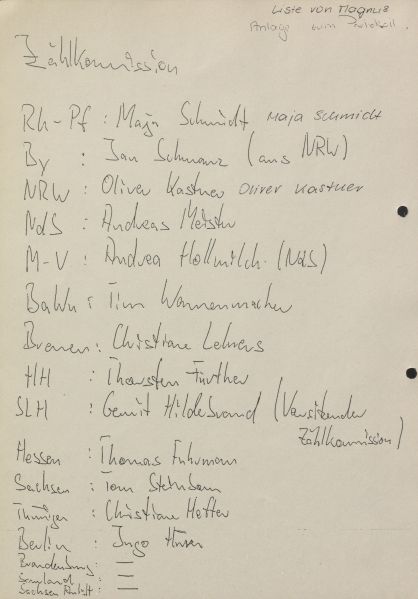 Liste von Magnus
Anlage zum Protokoll.
Zählkommission
Rh-Pf : Maja Schmidt Maja Schmidt
By : Jan Schwarz (aus NRW)
NRW : Oliver Kastner Oliver Kastner
NdS : Andreas Meister
M-V : Andrea Hollmilch (NdS)
BaWü : Tim Wannenmacher
Bremen : Christiane Lehners
HH : Thorsten Fürther
SLH : Gerrit Hildebrand (Vorsitzender
Zählkommission)
Hessen : Thomas Fuhrmann
Sachsen : Tom Steinborn
Thüringen : Christiane Hefter
Berlin : Ingo
Brandenburg : —
Saarland : —
Sachsen Anhalt : —